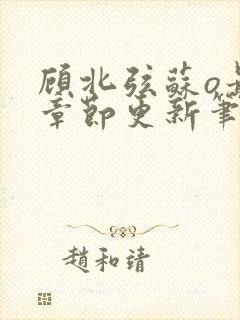 顾北弦蘇o
章節更新筆
趙和靖